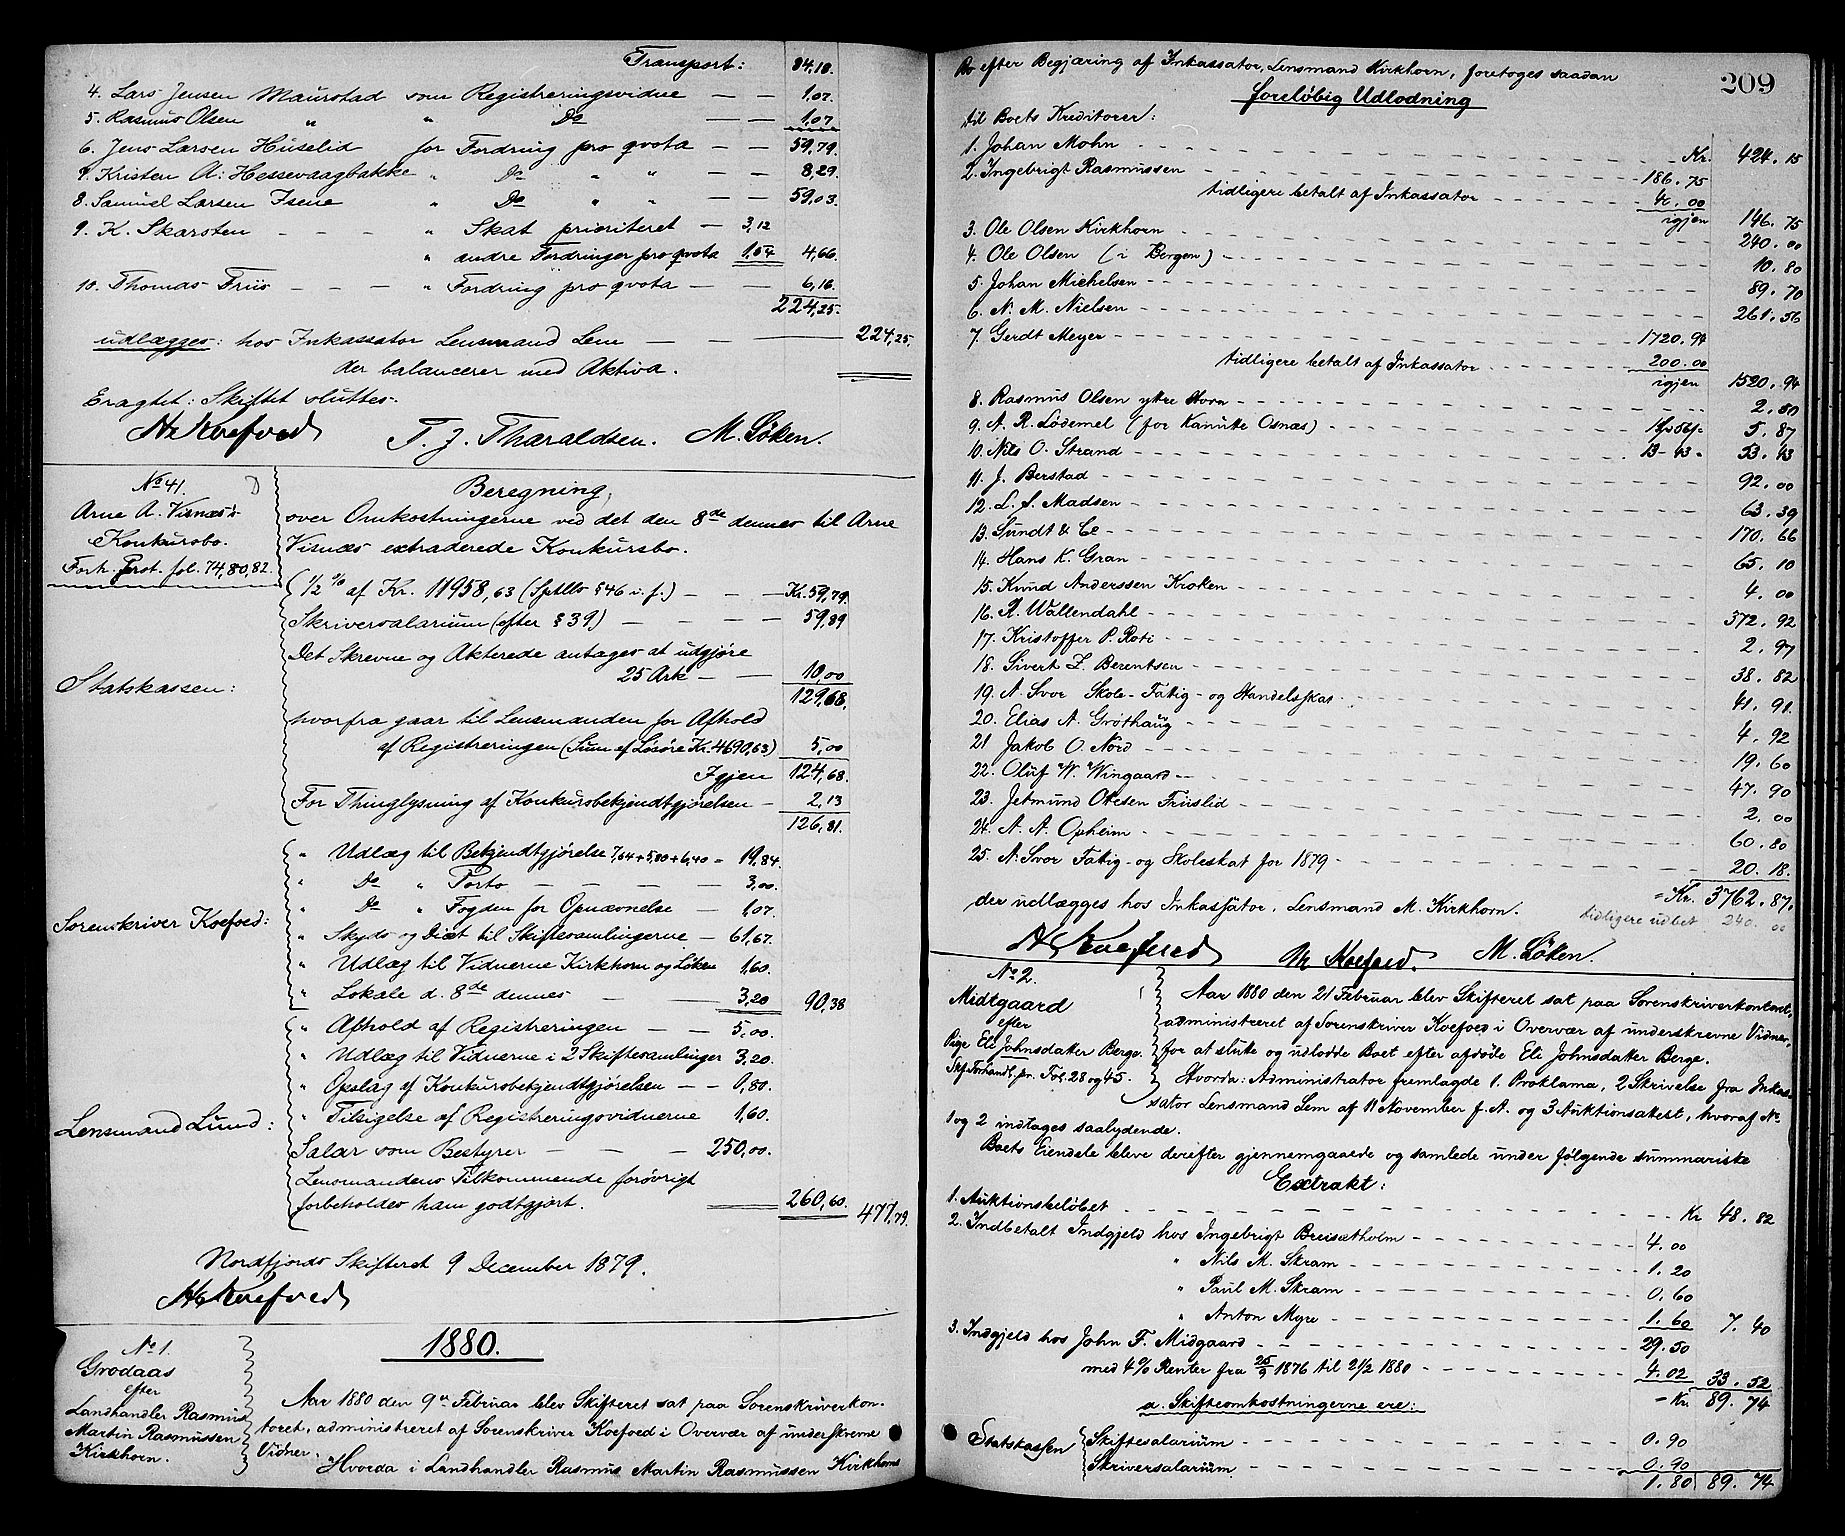 Transport: 84,18.
4. Lars Jensen Maurstad som Registreringsvidne — — 1,07.
5. Rasmus Olsen " " Do — — 1,07.
6. Jens Larsen Huselid for Fordring pro qvota — — 59,79.
7. Kristen A: Hessevaagbakke " Do " " — — 8,29.
8. Samuel Larsen Isene " Do " " — — 59,03.
9. K. Skarsten - - - " Skat prioriteret — 3,12
" andre Fordringer pro qvota 1,54 4,66.
10. Thomas Friis — — — " Fordring pro qvota — — 6,16.
224,25.
udlægges: hos Inkassator Lensmand Lem — — 224,25.
der balancerer med Aktiva.
Eragtet: Skiftet sluttes.
Koefoed T. J. Tharaldsen. M. Løken.
No 41.
Arne A. Visnæs's
Konkursbo.
Forh. Prot. fol. 74, 80, 82.
Beregning,
over Omkostningerne ved det den 8de dennes til Arne
Visnæs extraderede Konkursbo.
(1/2 % af Kr. 11958,63 (Sptllv §46 i. f.) — — Kr. 59,79.
Skriversalarium (efter § 39) — — — 59,89
Det Skrevne og Akterede antages at udgjøre
25 Ark — — 10,00
Statskassen: 129,68.
hvorfra gaar til Lensmanden for Afhold
af Registreringen (Sum af Løsøre Kr. 4690,63) 5,00
Igjen 124,68.
For Thinglysning af Konkursbekjendtgjørelsen — 2,13
126,81.
" Udlæg til Bekjendtgjørelse 7,64+5,80+6,40 = 19,84.
" Do " Porto — — — — 3,00.
" Do " Fogden for Opnævnelse — 1,07.
Sorenskriver Koefoed:
" Skyds og Diæt til Skiftesamlingerne — 61,67.
" Udlæg til Vidnerne Kirkhorn og Løken 1,60.
" Lokale d. 8de dennes — 3,20 90,38
" Afhold af Registreringen — — 5,00.
" Udlæg til Vidnerne i 2 Skiftesamlinger 3,20.
" Opslag af Konkursbekjendtgjørelsen — — 0,80.
" Tilsigelse af Registreringsvidnerne 1,60.
Lensmand Lund:
Salar som Bestyrer — — — 250,00.
Lensmandens Tilkommende forøvrigt
forbeholdes ham godtgjort. 260,60. 477,79.
Nordfjords Skifteret 9 December 1879.
Koefoed
1880.
No 1.
Grodaas
efter
Landhandler Rasmus
Martin Rasmussen
Kirkhorn.
Aar 1880 den 9de Februar blev Skifteret sat paa Sorenskriverkon-
toret, administreret af Sorenskriver Koefoed i Overvær af underskrevne
Vidner.
Hvorda i Landhandler Rasmus Martin Rasmussen Kirkhorns
209
Bo efter Begjæring af Inkassator, Lensmand Kirkhorn, foretoges saadan
foreløbig Udlodning
til Boets Kreditorer:
1. Johan Mohn - - - Kr. 424.15
2. Ingebrigt Rasmussen - - - 186.75
tidligere betalt af Inkassator - - - 40.00
igjen 146.75
3. Ole Olsen Kirkhorn - - - 240.00
4. Ole Olsen (i Bergen) - - - 10.80
5. Johan Michelsen - - - 89.70
6. N. M. Nielsen - - - 261.56
7. Gerdt Meyer - - - 1720.94
tidligere betalt af Inkassator - - - 200.00
igjen 1520.94
8. Rasmus Olsen ytre Horn - - - 2.80
9. A. R. Lødemel (for Kanutte Osnæs) - - - 5.87
10. Nils O. Strand - - - 13-43 - 53.43
11. J. Berstad - - - 92.00
12. L. S. Madsen - - - 63.39
13. Sundt & Co - - - 170.66
14. Hans K. Gran - - - 65.10
15. Knud Anderssen Kroken - - - 4.00
16. A. Wallendahl - - - 372.92
17. Kristoffer P. Roti - - - 2.97
18. Sivert Z. Berentsen - - - 38.82
19. N. Svor Skole- Fatig- og Handelsskat - - - 41.91.
20. Elias A. Grøthaug - - - 4.92
21 Jakob O. Nord - - - 19.60
22. Oluf W. Wingaard - - - 47.90
23. Jetmund Olesen Fivislid - - - 2.00
24. A. A. Opheim - - - 60.80
25. N. Svor Fatig- og Skoleskat for 1879 - - - 20.18.
= Kr. 3762.87.
der udlægges hos Inkassator, Lensmand M. Kirkhorn.
tidligere udbet 240.00
Koefoed Koefoed. M. Løken.
No 2.
Midtgaard
efter
Pige Eli Johnsdatter Berge.
Skf. Forhandl. pr. Fol. 28 og 45.
Aar 1880 den 21 Februar blev Skifteret sat paa Sorenskriverkontoret,
administreret af Sorenskriver Koefoed i Overvær af underskrevne Vidner,
for at slutte og udlodde Boet efter afdøde Eli Johnsdatter Berge.
Hvorda: Administrator fremlagde 1. Proklama, 2 Skrivelse fra Inkas-
sator Lensmand Lem af 11 November f. A. og 3 Auktionsattest, hvoraf No
1 og 2 indtages saalydende.
Boets Eiendele bleve derefter gjennemgaaede og samlede under følgende summariske
Extrakt:
1. Auktionsbeløbet - - - Kr 48.82
2. Indbetalt Indgjeld hos Ingebrigt Breisætholm - - - 4.00
" Nils M. Skram - - - 1.20
" Paul M. Skram - - - 0.60
" Anton Myre - - - 1.60 7.40
3. Indgjeld hos John F. Midgaard - - - 29.50
med 4% Renter fra 25/9 1876 til 21/2 1880 - - - 4.02 33.52
= Kr. 89.74
a. Skifteomkostningerne ere:
Statskassen
Skiftesalarium - - - 0.90
Skriversalarium - - - 0.90
1.80 89.74